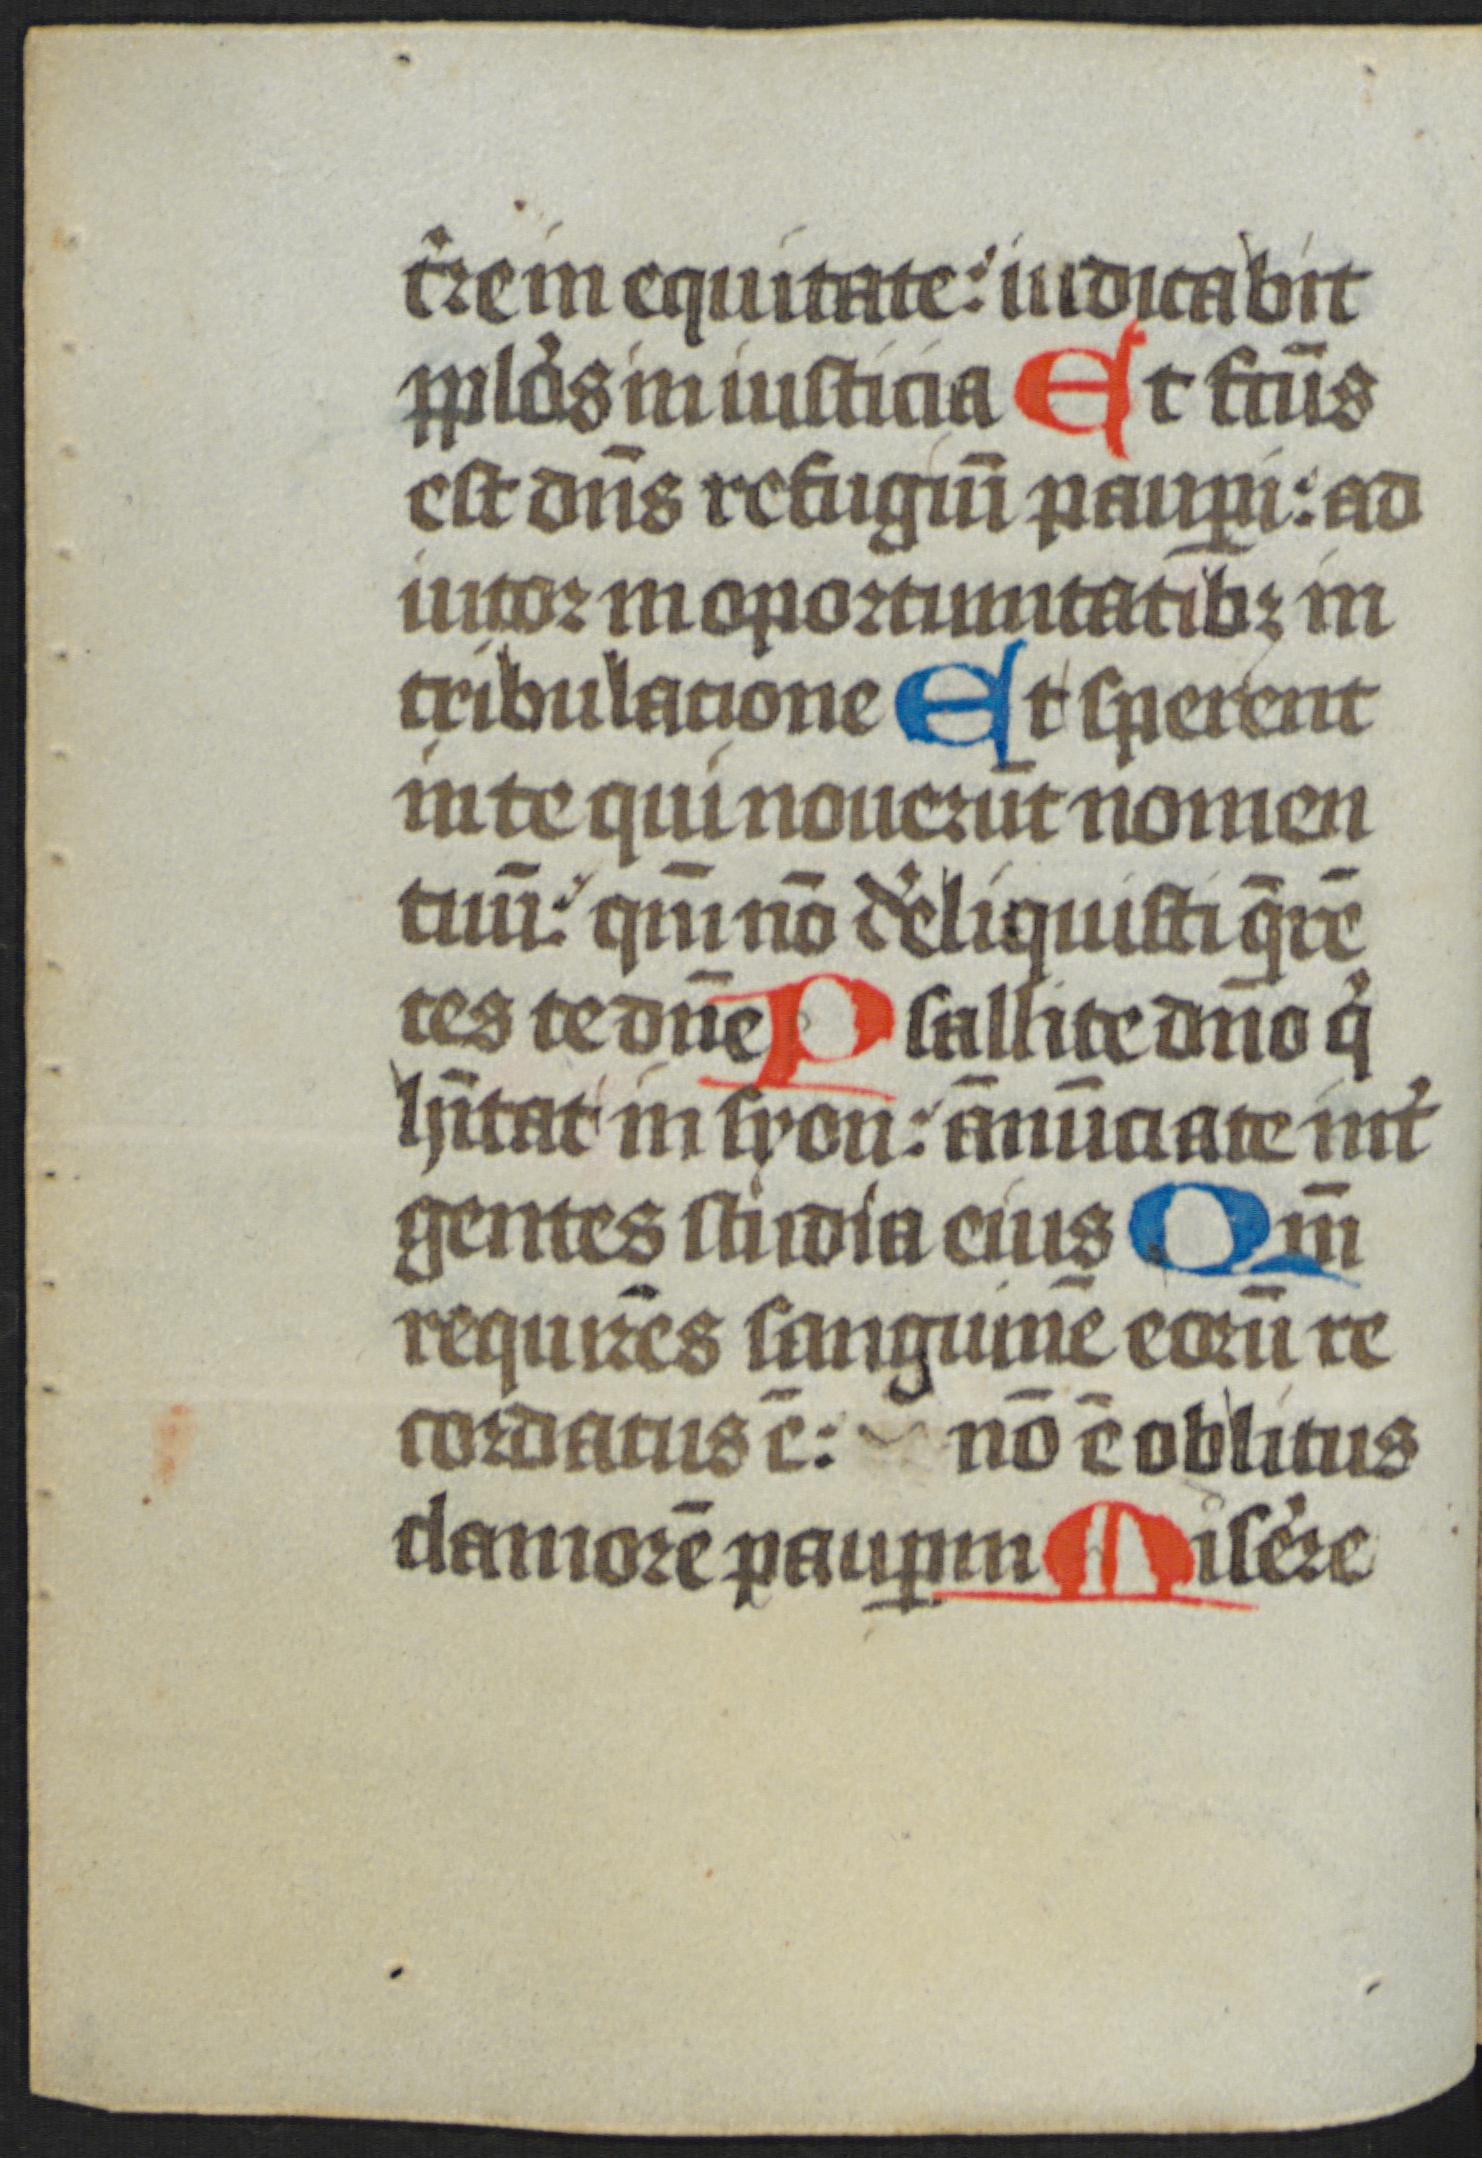 t̉re in equitate: iudicabit
pplo̓s in iusticia Et fcūs
est dn̄s refugiū paup̱i: ad
iutor in oportunitatib; in
tribulacione Et sperent
in te qui nouerūt nomen
tuū: qm̄ nō de̓liquisti q̄rē
tes te dn̄e Psallite dn̄o q̓
hītat in syon: ānūciate int̓
gentes studia eius Qm̄
requir̄es sanguinē eorū re
cordatus ē: nō ē oblitus
clamorē paup̱um Mise̓re